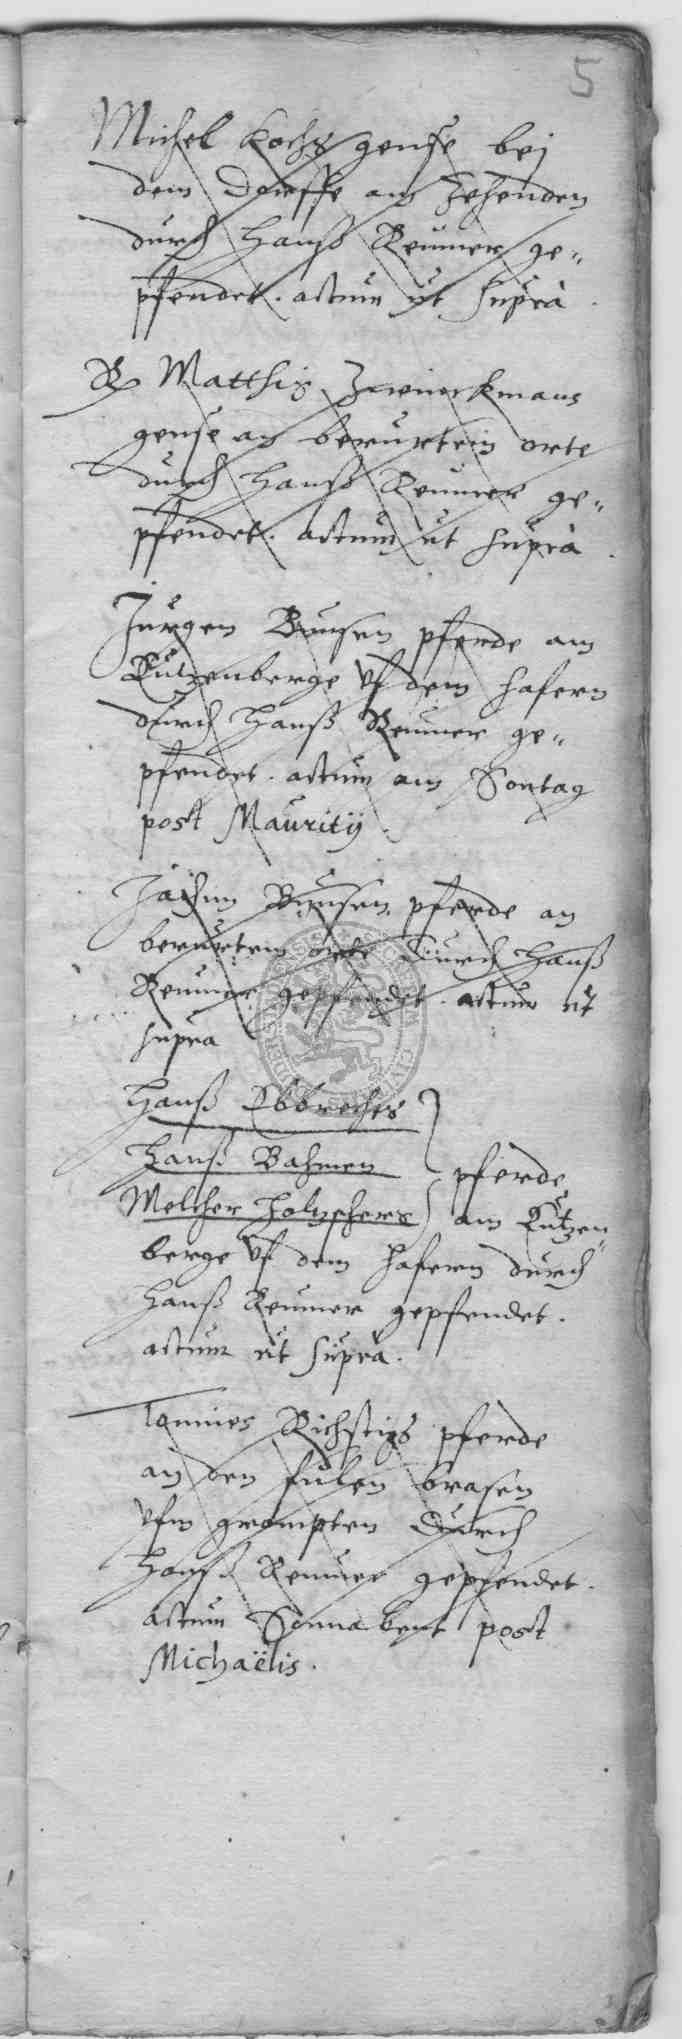 5
Michel Kochs gense bej
dem Dorffe am Zehenden
durch Hanß Reumer ge„
pfendet. actum ut suprà
R Matthis Zwinckmans
gense an berurtem orte
durch Hanß Reumer ge„
pfendet. actum ut suprà.
Jurgen Bunsen pferde am
Kutzenberge uf dem hafern
durch Hanß Reumer ge„
pfendet. actum am Sontag
post Mauritij.
Jachim Bunsen pferde an
berurtem orte durch Hanß
Reumer gepfendet. actum ut
supra
Hanß Ebbrechts
Hanß Bahmen pferde
Melcher Holzschers am Kutzen„
berge uf dem hafern durch
Hanß Reumer gepfendet.
actum ut suprà.
Tonnies Richstigs pferde
an den fulen brasen
ufm grompten durch
Hanß Reumer gepfendet.
actum Sonnabent post
Michaëlis.